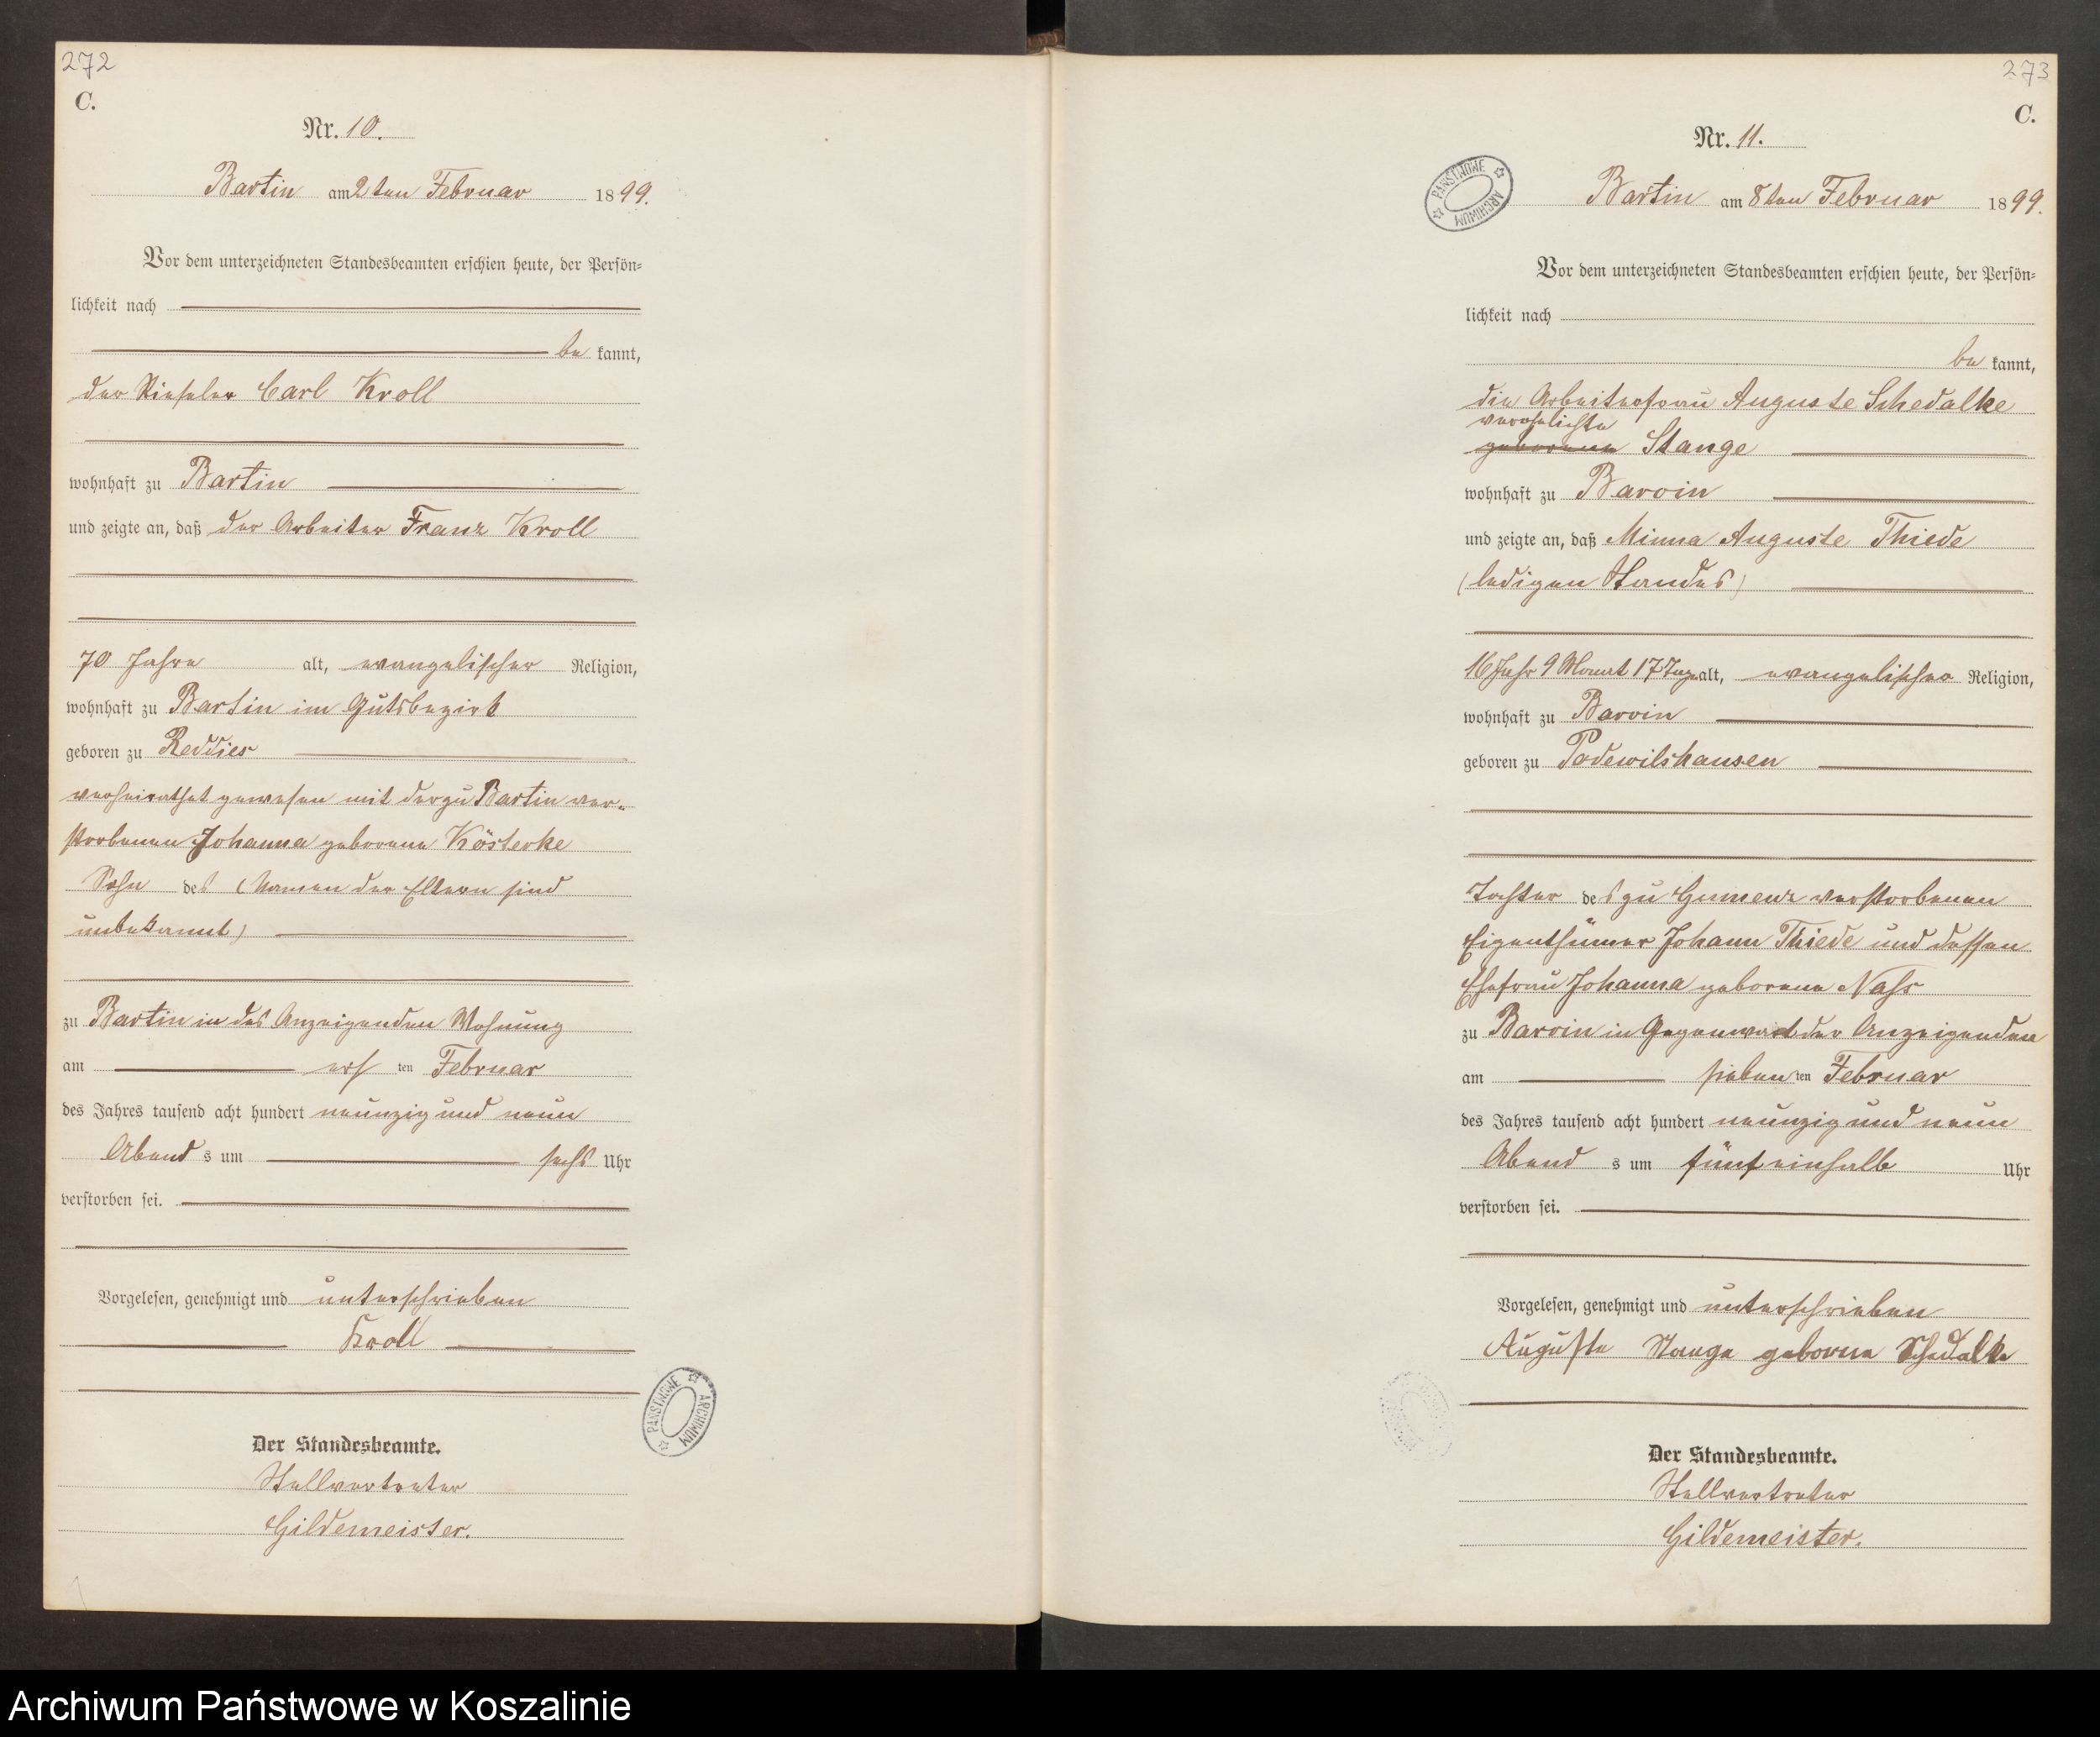 272
C.
Nr. 10.
Bartin am 2ten Februar 1899.
Vor dem unterzeichneten Standesbeamten erschien heute, der Persön=
lichkeit nach
be kannt,
der Rieseler Carl Kroll
wohnhaft zu Bartin
und zeigte an, daß der Arbeiter Franz Kroll
70 Jahre alt, evangelischer Religion,
wohnhaft zu Bartin im Gutsbezirk
geboren zu Reddies
verheirathet gewesen mit der zu Bartin ver-
storbenen Johanna geborene Kösterke
Sohn des (Namen der Eltern sind
unbekannt)
zu Bartin in des Anzeigenden Wohnung
am erst ten Februar
des Jahres tausend acht hundert neunzig und neun
Abend s um sechs Uhr
verstorben sei.
Vorgelesen, genehmigt und unterschrieben
Kroll
PAŃSTWOWE ARCHIWUM
Der Standesbeamte.
Stellvertreter
Gildemeister.
273
C.
Nr. 11.
PAŃSTWOWE ARCHIWUM
Bartin am 8ten Februar 1899.
Vor dem unterzeichneten Standesbeamten erschien heute, der Persön=
lichkeit nach
be kannt,
die Arbeiterfrau Auguste Schedalke
verehelichte
geborene Stange
wohnhaft zu Barvin
und zeigte an, daß Minna Auguste Thiede
(ledigen Standes)
16 Jahr 9 Monat 17 Tage alt, evangelischer Religion,
wohnhaft zu Barvin
geboren zu Podewilshausen
Tochter des zu Gumenz verstorbenen
Eigenthümer Johann Thiede und dessen
Ehefrau Johanna geborene Nahs
zu Barvin in Gegenwart der Anzeigenden
am sieben ten Februar
des Jahres tausend acht hundert neunzig und neun
Abend s um fünf einhalb Uhr
verstorben sei.
Vorgelesen, genehmigt und unterschrieben
Auguste Stange geborne Schedalke
Der Standesbeamte.
Stellvertreter
Gildemeister.
Archiwum Państwowe w Koszalinie